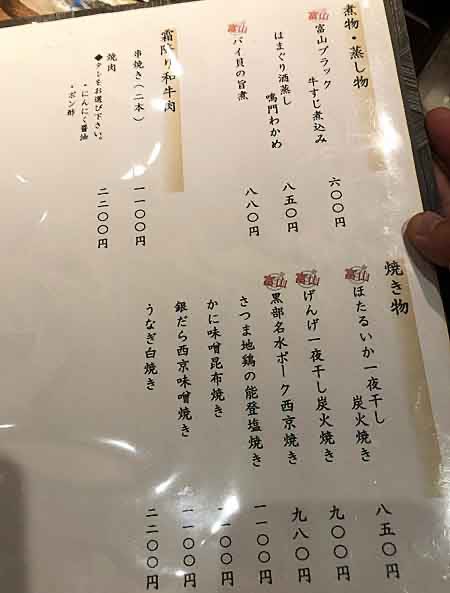 煮物・蒸し物
富山
富山ブラック
牛すじ煮込み
六〇〇円
はまぐり酒蒸し
鳴門わかめ
八五〇円
富山
バイ貝の旨煮
八八〇円
霜降り和牛肉
串焼き(二本)
一一〇〇円
焼肉
◆タレをお選び下さい。
・にんにく醤油
・ポン酢
二二〇〇円
焼き物
富山
ほたるいか一夜干し
炭火焼き
八五〇円
富山
げんげ一夜干し炭火焼き
九〇〇円
富山
黒部名水ポーク西京焼き
九八〇円
さつま地鶏の能登塩焼き
一一〇〇円
かに味噌昆布焼き
一一〇〇円
銀だら西京味噌焼き
一一〇〇円
うなぎ白焼き
二二〇〇円